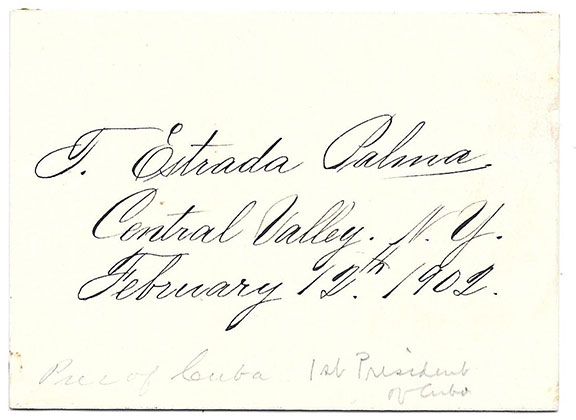 T. Estrada Palma.
Central Valley. N. Y.
February 12.th 1902.
Pres of Cuba 1st President
of Cuba